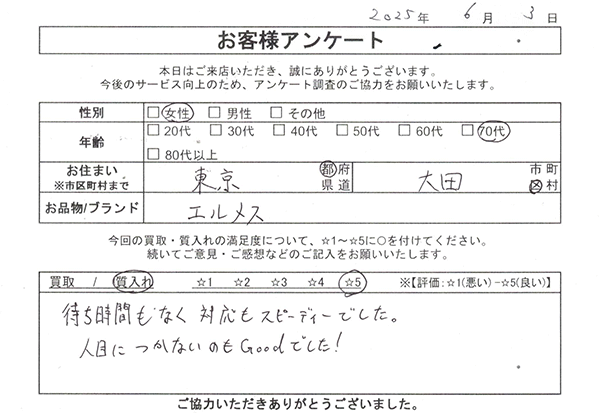 2025年 6月 3日
お客様アンケート
本日はご来店いただき、誠にありがとうございます。
今後のサービス向上のため、アンケート調査のご協力をお願いいたします。
性別 □女性 □男性 □その他
年齢 □20代 □30代 □40代 □50代 □60代 □70代
□80代以上
お住まい
※市区町村まで
東京 都府県道 大田 市町区村
お品物/ブランド エルメス
今回の買取・質入れの満足度について、☆1～☆5に○を付けてください。
続いてご意見・ご感想などのご記入をお願いいたします。
買取 / 質入れ ☆1 ☆2 ☆3 ☆4 ☆5 ※【評価:☆1(悪い)-☆5(良い)】
待ち時間もなく 対応もスピーディーでした。
人目につかないのもGoodでした!
ご協力いただきありがとうございました。